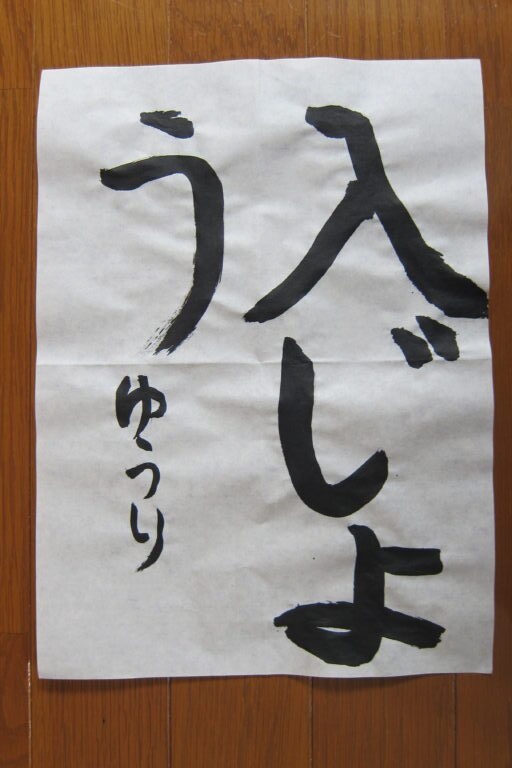 入じよ
う
ゆうり